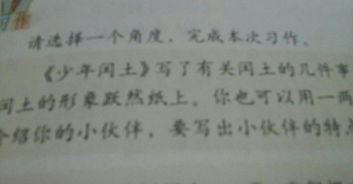 作
请选择一个角度，完成本次习作。
《少年闰土》写了有关闰土的几件事
闰土的形象跃然纸上。你也可以用一两
介绍你的小伙伴，要写出小伙伴的特点